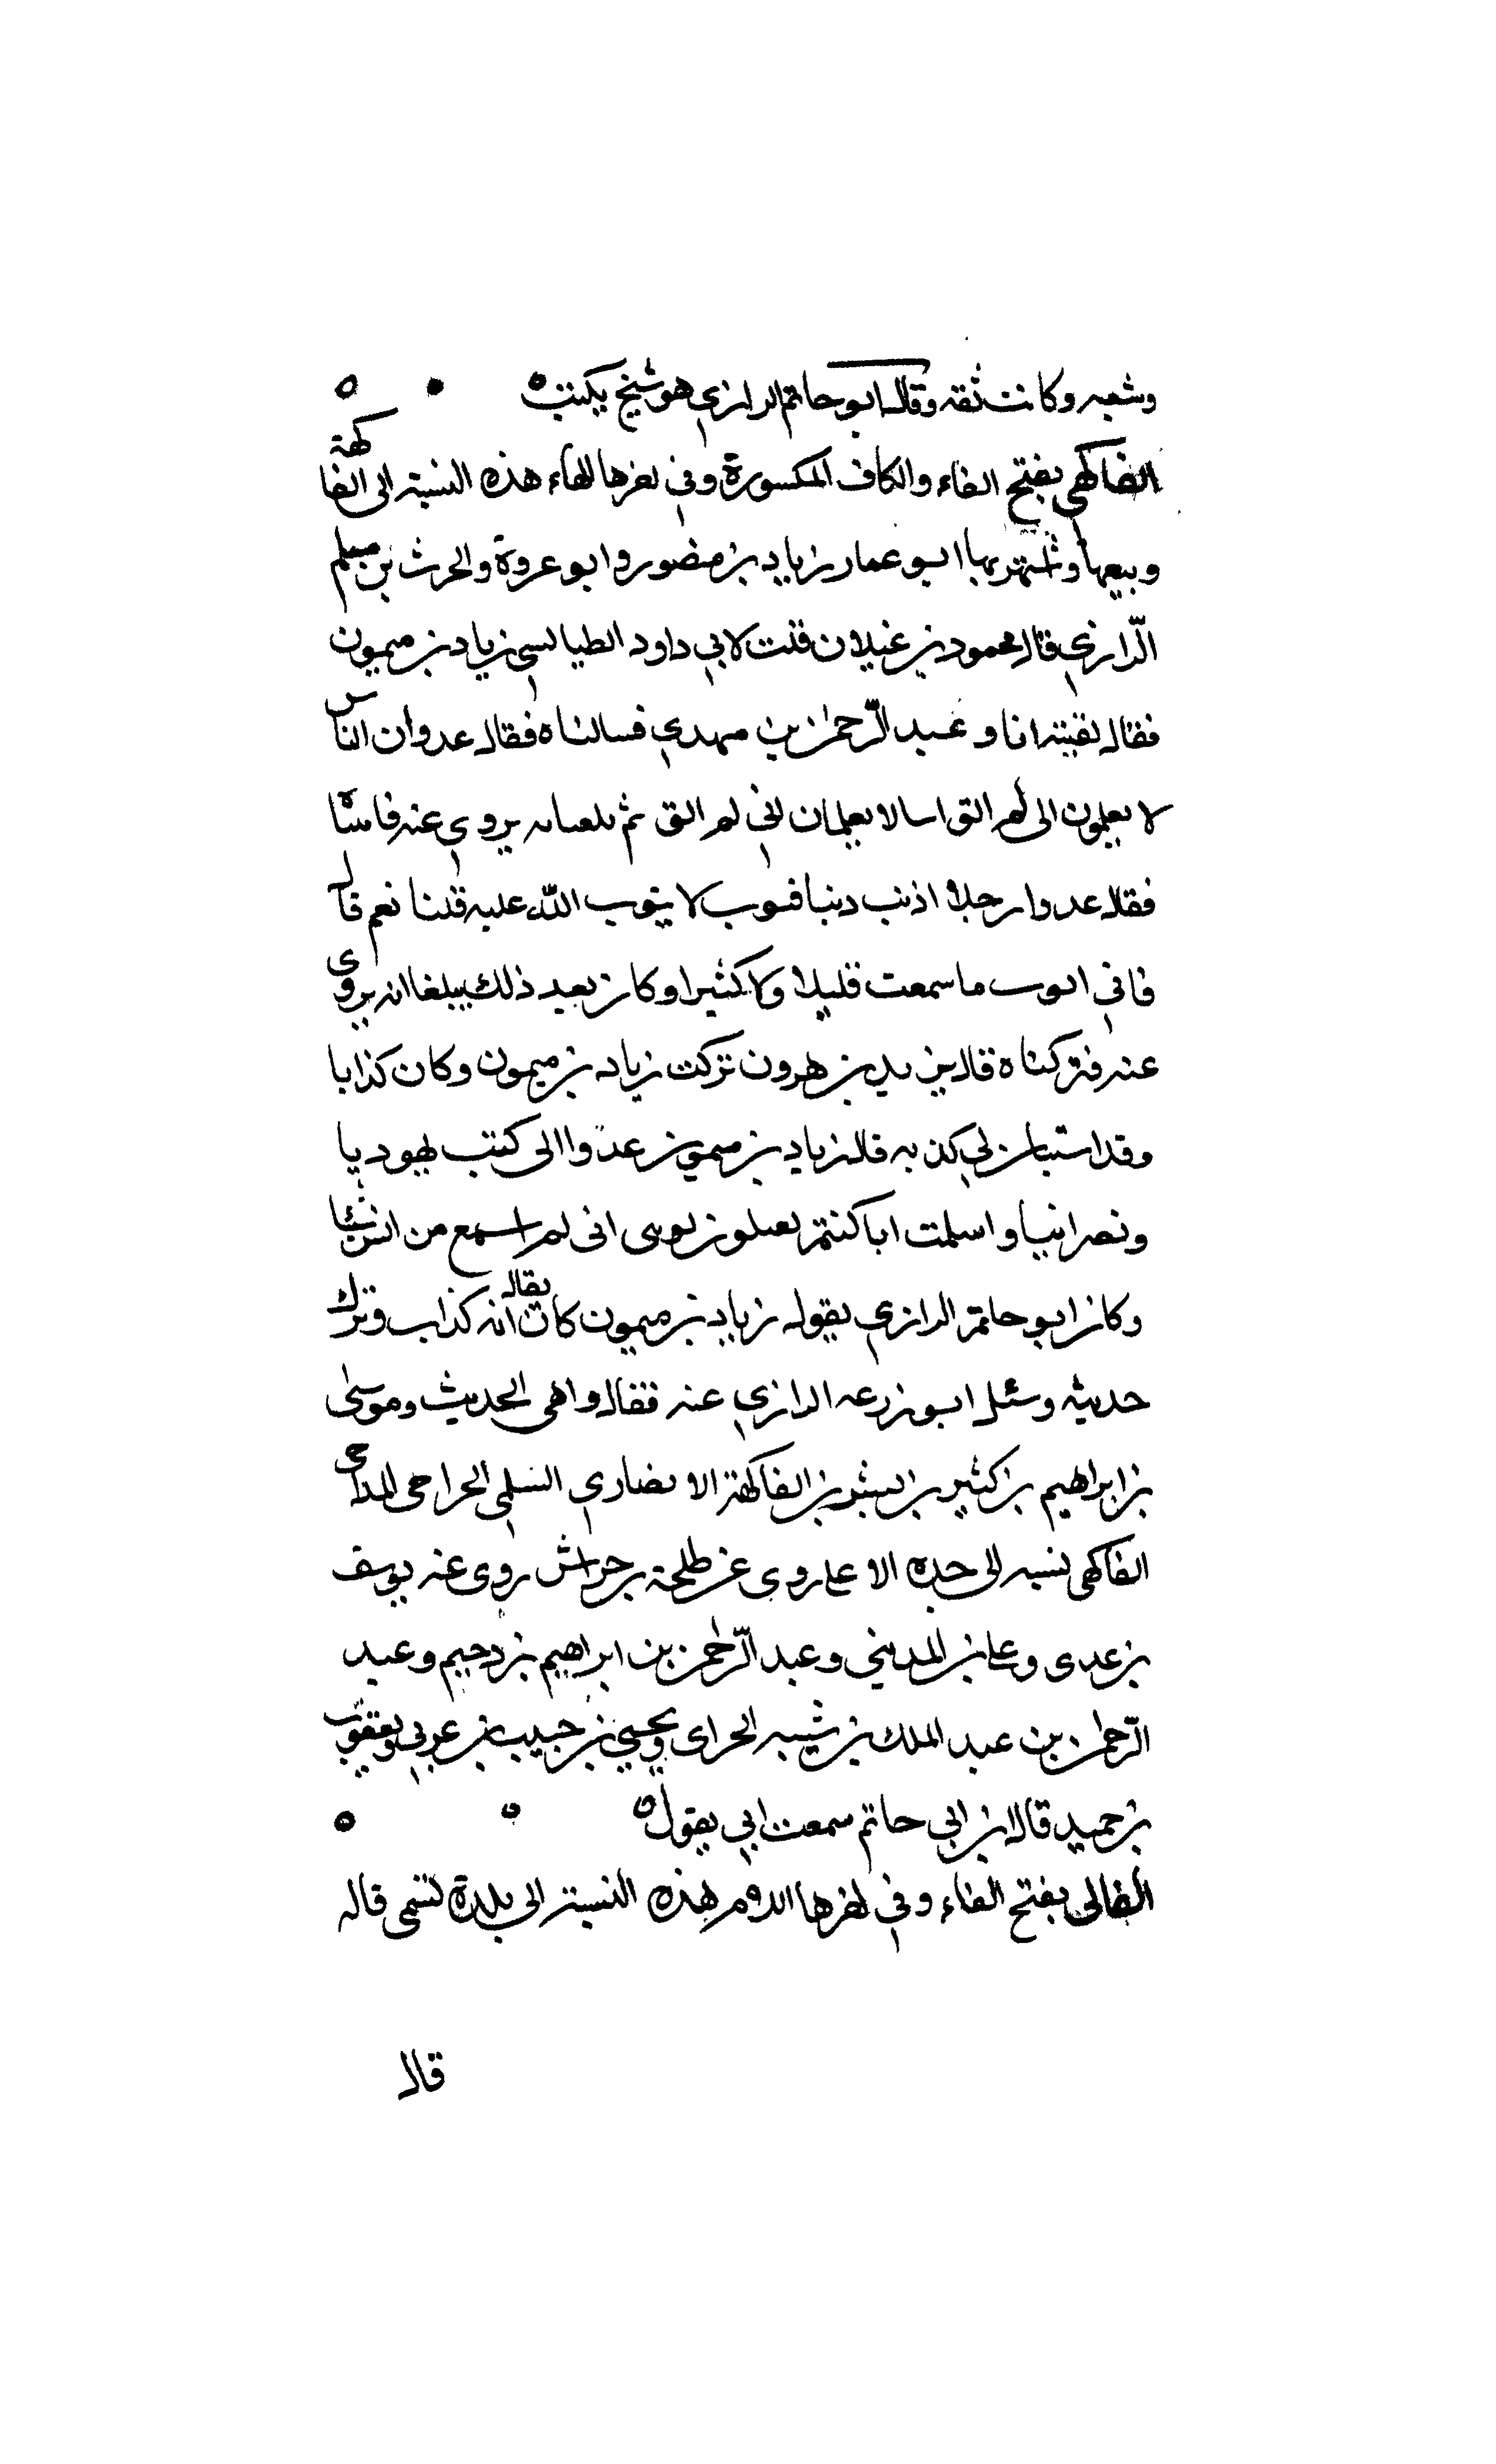 وشعبه وكانت ثقه وقال ابو حاتم الرازي هو شيخ يكتب
الفاكهي بفتح الفاء والكاف المكسورة وفي اخرها الهاء هذه النسبة الى الفاكهة
وبيعها واشتهر بها ابو عمار زياد بن منصور وابو عروة والحرث بن مسلم
الرازي قال محمود بن غيلان قلت لابي داود الطيالسي زياد بن ميمون
فقال لقيته انا وعبد الرحمن بن مهدي فسالناه فقال عدوان الناس
لا يعلمون الى لم الق اسا لا يعلمان اني لم الق ثم بلغنا انه يروي عنه فاتيناه
فقال عدوا رجلا اذنب دنبا فتوب لا يتوب الله عليه قلنا نعم قال
فاني اتوب ما سمعت قليلا ولا كثيرا وكان بعد ذلك يبلغنا انه يروى
عنه فتركناه قال يزيد بن هرون تركت زياد بن ميمون وكان كذابا
وقد استبان لي كذبه قال زياد بن ميمون عدوا الى كنت يهوديا
ونصرانيا واسلمت اما كنتم تعلمون اني لم اسمع من انس شيئا
وكان ابو حاتم الرازي يقول زياد بن ميمون كان يقال انه كذاب وترك
حديثه وسئل ابو زرعه الرازي عنه فقال واهى الحديث وموسى
بن ابراهيم بن كثير بن بشير بن الفاكهة الانصاري السلمى الحرامى المدنى
الفاكهى نسبه الى جده الاعلى روى عن طلحة بن خراش روى عنه يوسف
بن عدى وعلى بن المديني وعبد الرحمن بن ابراهيم بن دحيم وعبد
الرحمن بن عبد الملك بن شيبه الحزامى ويحيى بن حبيب بن عربي ويعقوب
بن حميد قال ابن ابي حاتم سمعت ابي يقول
الفالى بفتح الفاء وفي اخرها اللام هذه النسبة الى بلدة تسمى قاله
قال